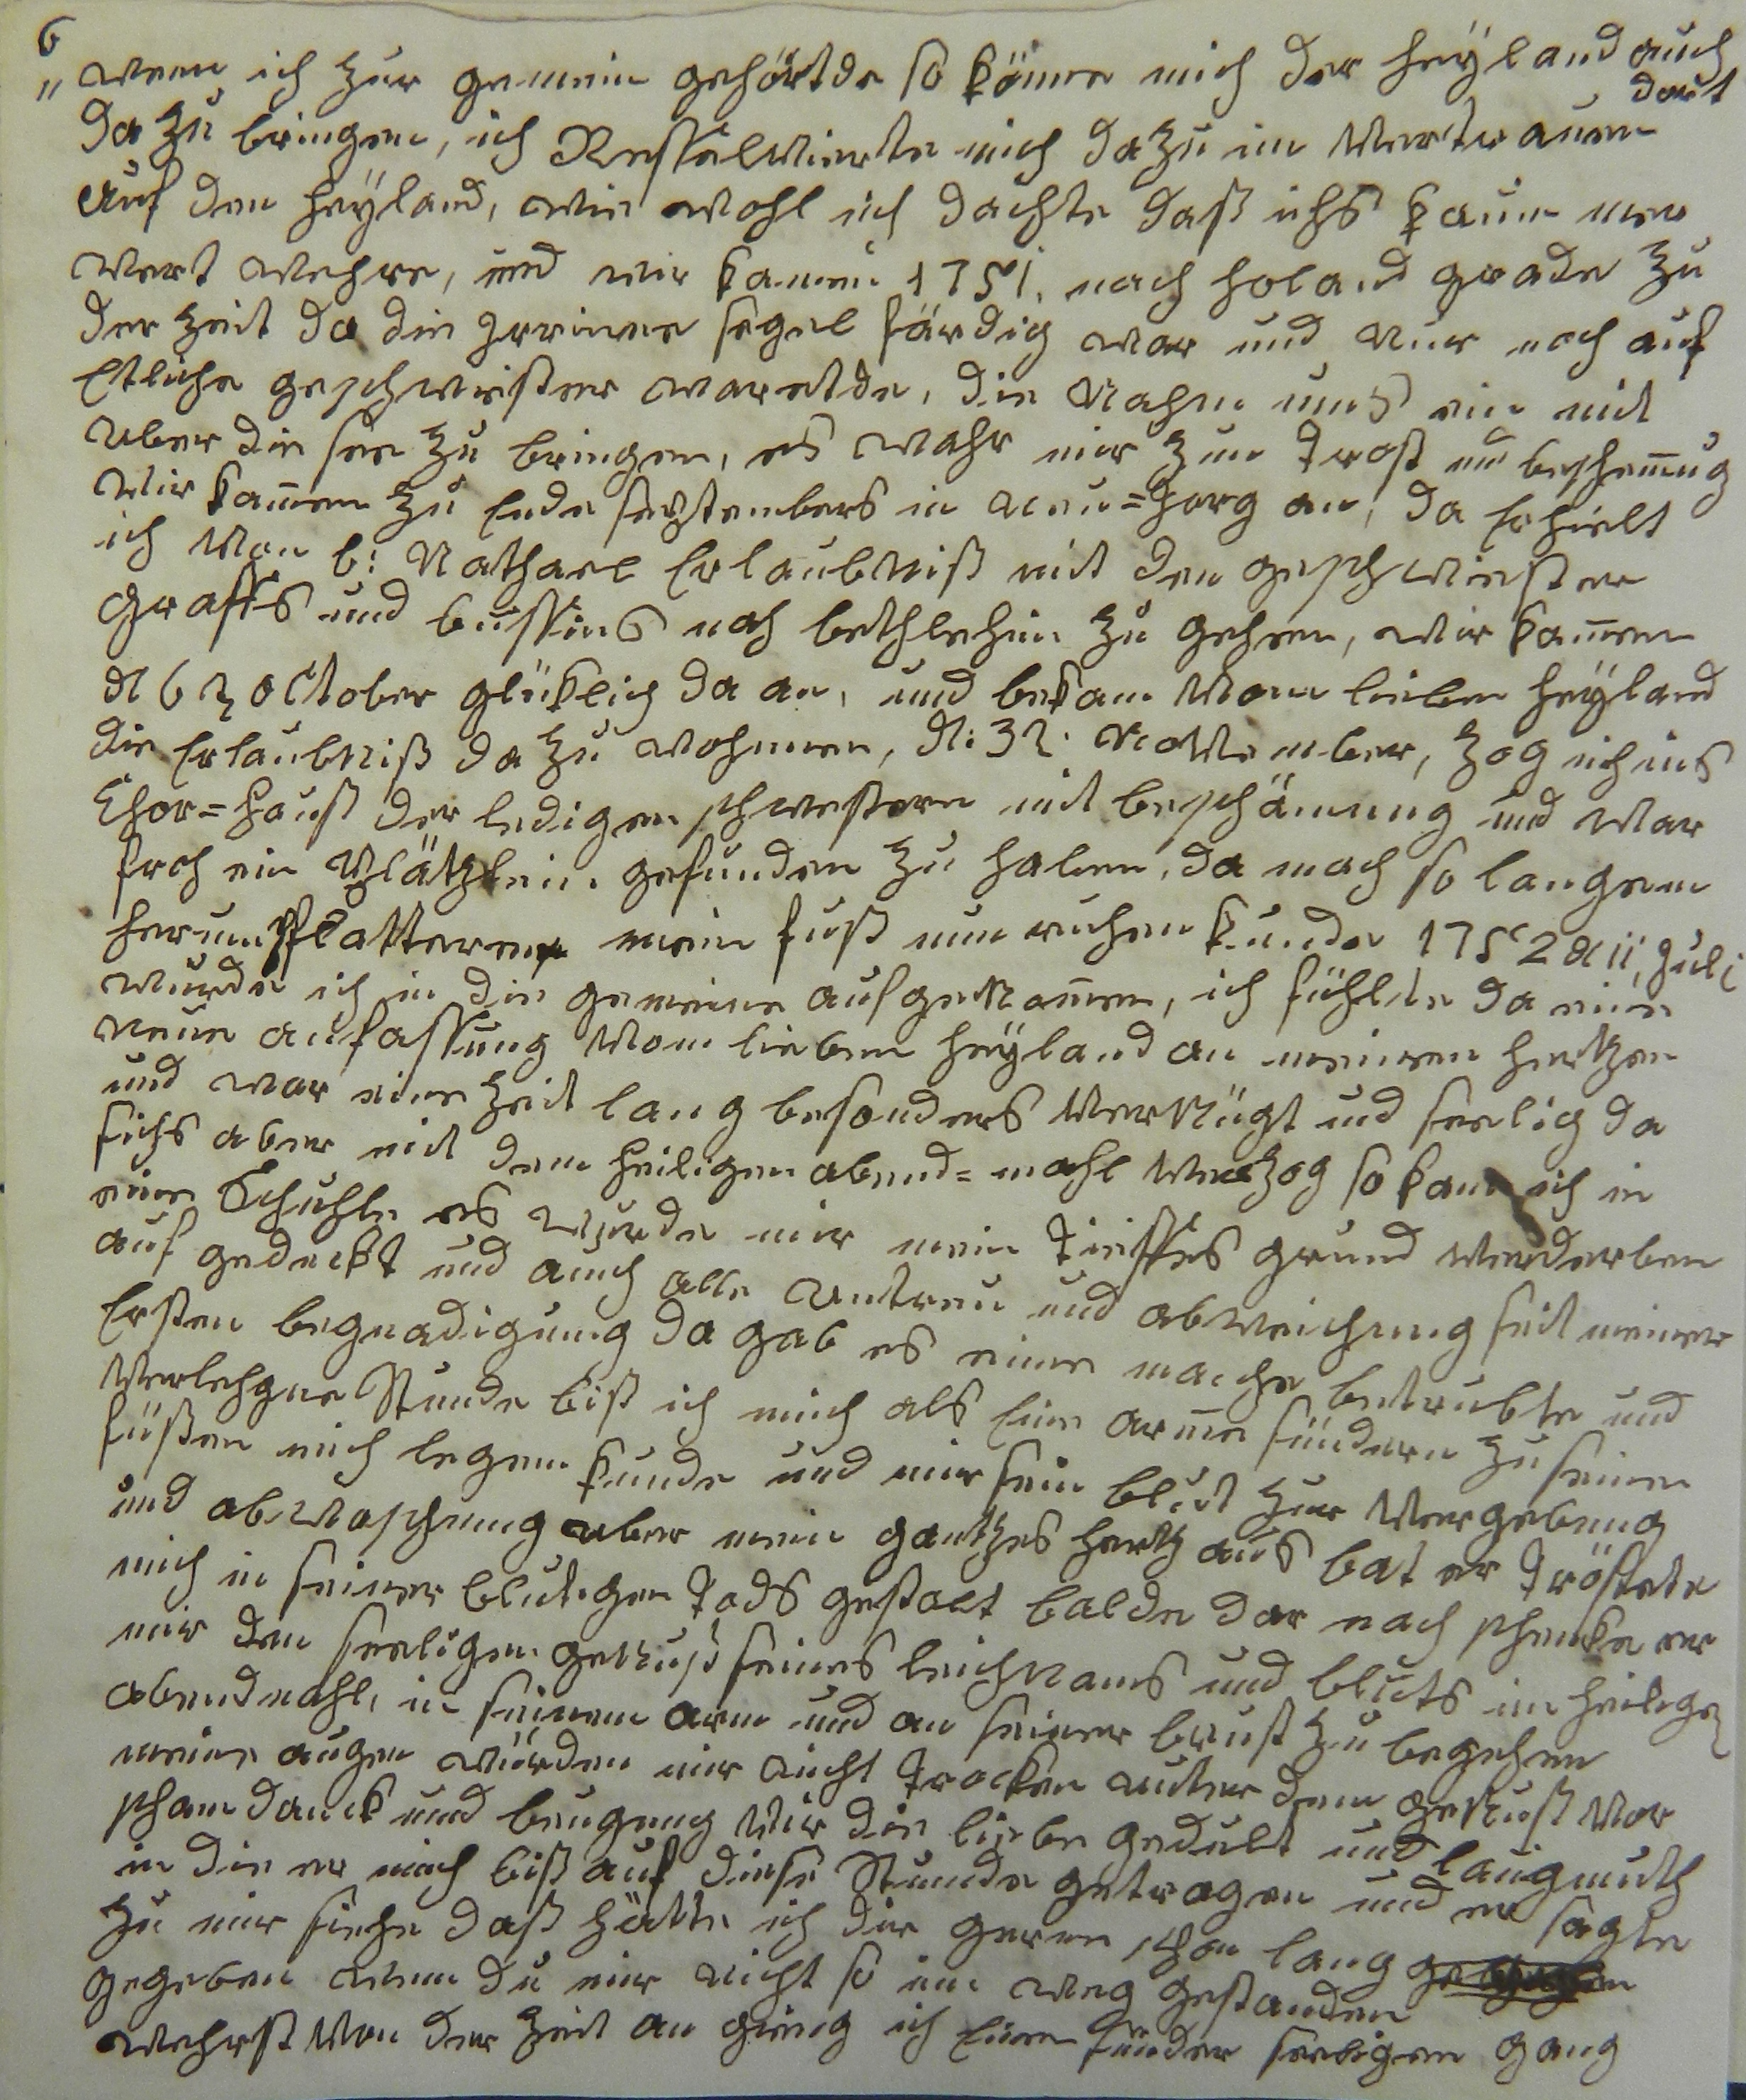 6
„ wenn ich zur gemein gehörtde so könne mich der heÿland auch dort
da zu bringen, ich Ressalvierte mich da zu im Vertrauen
auf den heÿland, wie wohl ich dachte daß ichs kaum mer
wert wehre, und wir kamen 1751. nach holand grade zu
der zeit da die Jrrine segel färdig war und nur noch auf
Etliche geschwister waretde, die Nahm uns ein mit
uber die see zu bringen, es wahr mir zum trost und beschemung
wir kam̄en zu Ende septembers in neu=Jorg an, da Erhielt
ich von b: Nathael Erlaubniß mit den geschwister
Graffs und bussins nach bethlehm zu gehen, wir kam̄en
october glüklich da an, und bekam vom lieben heÿland
die Erlaubniß da zu wohnen, November, zog ich ins
Chor=hauß der ledigen schwestern mit beschämung und war
froh ein Plätzlein gefunden zu haben, da nach so langem
herum flatteren mein fuß nun ruhen kunde 1752 d 11, Juli
wurde ich in die gemeine aufgenom̄en, ich fühlte da eine
neue anfassung vom lieben heÿland an meinem hertzen
und war eine zeit lang besonders vernügt und seelig da
sichs aber mit dem heiligen abend=mahl verzog so kam ich in
eine Schuhle es wurde mir mein tieffes grund verderben
auf gedeckt und auch alle untreu und abweichung seit meiner
Ersten begnadigung da gab es eine manche betrubte und
verlehgne Stunde biß ich mich als Eine arme sündern zu seinen
füßen mich legen kunde und mir sein blut zur vergebung
und abwaschung uber mein gantzes hertz aus bat er tröstete
mich in seiner blutigen tods gestalt balde dar nach schenke er
mir den seeligen genuß seines leichnams und bluts im heilige
abendmahl, in seinem arm und an seiner brust zu begehen
meine augen würden mir nicht trocken unter dem genuß vor
scham danck und beugung vir die liebe gedult und langmuth
in die er mich biß auf diese Stunde getragen und er sagte
zu mir siehe daß hätte ich dir geren schon lang
gegeben wenn du mir nicht so im weg gestanden
wehrst von der zeit an gieng ich Einen sünder seeligen gang